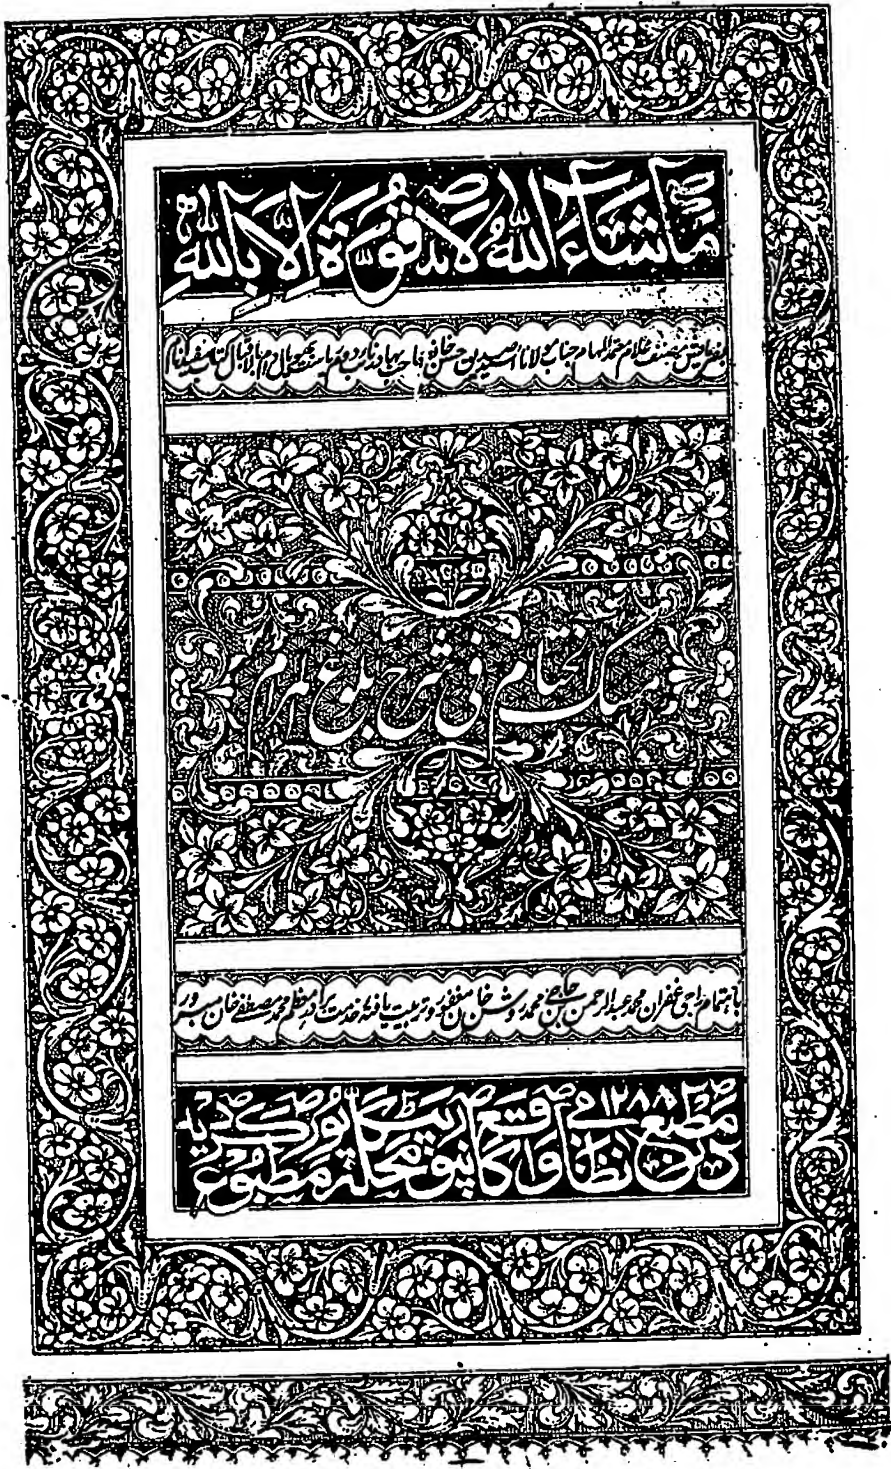 مَا شَاءَ اللّٰهُ لَا قُوَّةَ اِلَّا بِاللّٰهِ
بفرمایش مصنف علام مدار المہام جناب مولانا سید صدیق حسن خان صاحب بہادر نائب دوم ریاست بھوپال دام بالاقبال کتاب مفید انام
مسک الختام فی شرح بلوغ المرام
باہتمام راجی غفران محمد عبدالرحمن بن حاجی محمد روشن خان مغفور و تربیت یافتۂ خدمت برادر معظم محمد مصطفے خان مبرور
در مطبع نظامی ١٢٨٨ واقع کانپور محلہ پٹکاپور مطبوع گردید